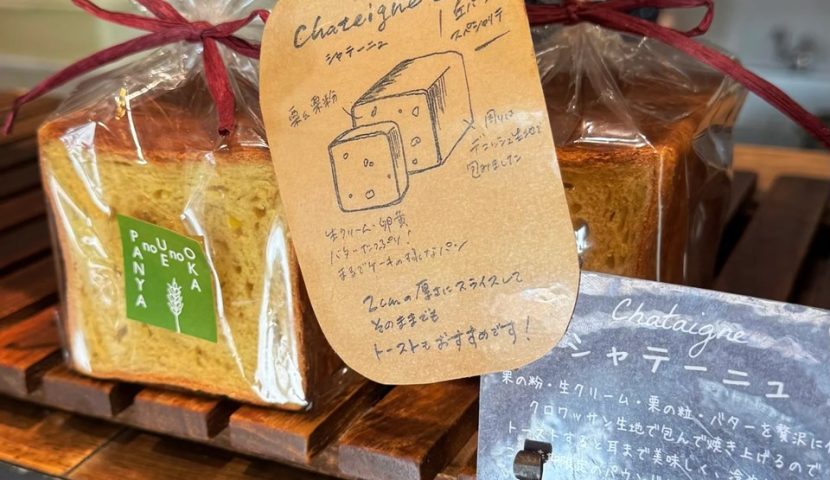 PANYA
no UE no
OKA
Chataigne
シャテーニュ
栗&栗粉
周りは
デニッシュ生地で
包みました
生クリーム・卵黄
バターたっぷり!
まるでケーキの様なパン
2cmの厚さにスライスして
そのままでも
トーストもおすすめです!
Chataigne
シャテーニュ
栗の粉・生クリーム・栗の粒・バターを贅沢に
クロワッサン生地で包んで焼き上げ
トーストすると耳まで美味しく、
のパウンド